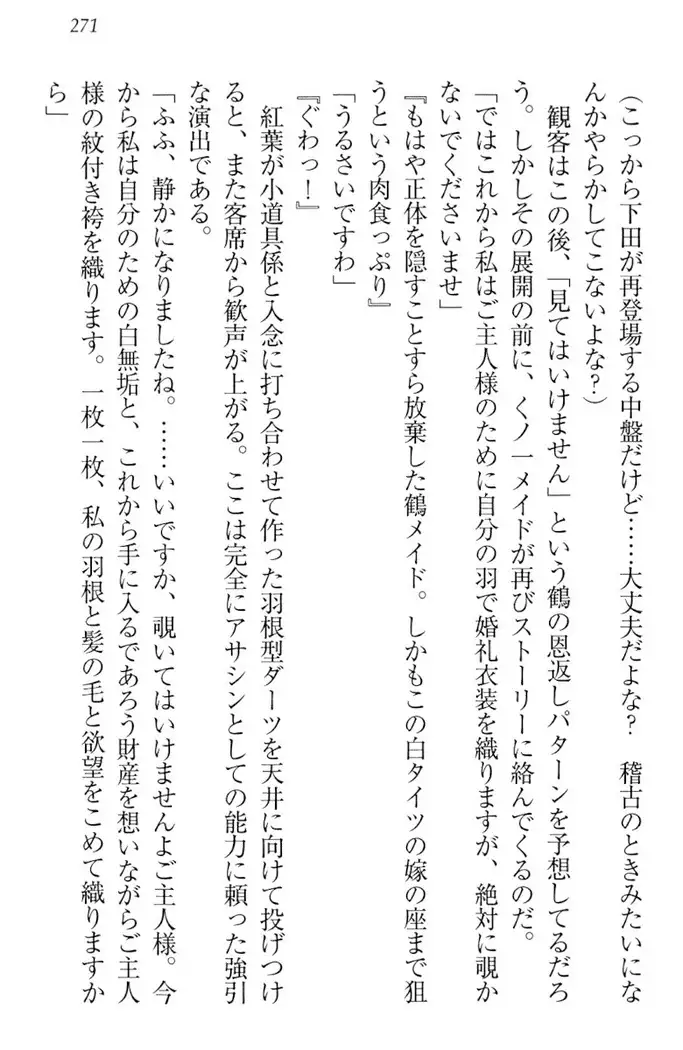 271
（こっから下田が再登場する中盤だけど……大丈夫だよな？　稽古のときみたいにな
んかやらかしてこないよな？）
　観客はこの後、「見てはいけません」という鶴の恩返しパターンを予想してるだろ
う。しかしその展開の前に、くノ一メイドが再びストーリーに絡んでくるのだ。
「ではこれから私はご主人様のために自分の羽で婚礼衣装を織りますが、絶対に覗か
ないでくださいませ」
『もはや正体を隠すことすら放棄した鶴メイド。しかもこの白タイツの嫁の座まで狙
うという肉食っぷり』
「うるさいですわ」
『ぐわっ！』
　紅葉が小道具係と入念に打ち合わせて作った羽根型ダーツを天井に向けて投げつけ
ると、また客席から歓声が上がる。ここは完全にアサシンとしての能力に頼った強引
な演出である。
「ふふ、静かになりましたね。……いいですか、覗いてはいけませんよご主人様。今
から私は自分のための白無垢と、これから手に入るであろう財産を想いながらご主人
様の紋付き袴を織ります。一枚一枚、私の羽根と髪の毛と欲望をこめて織りますか
ら」